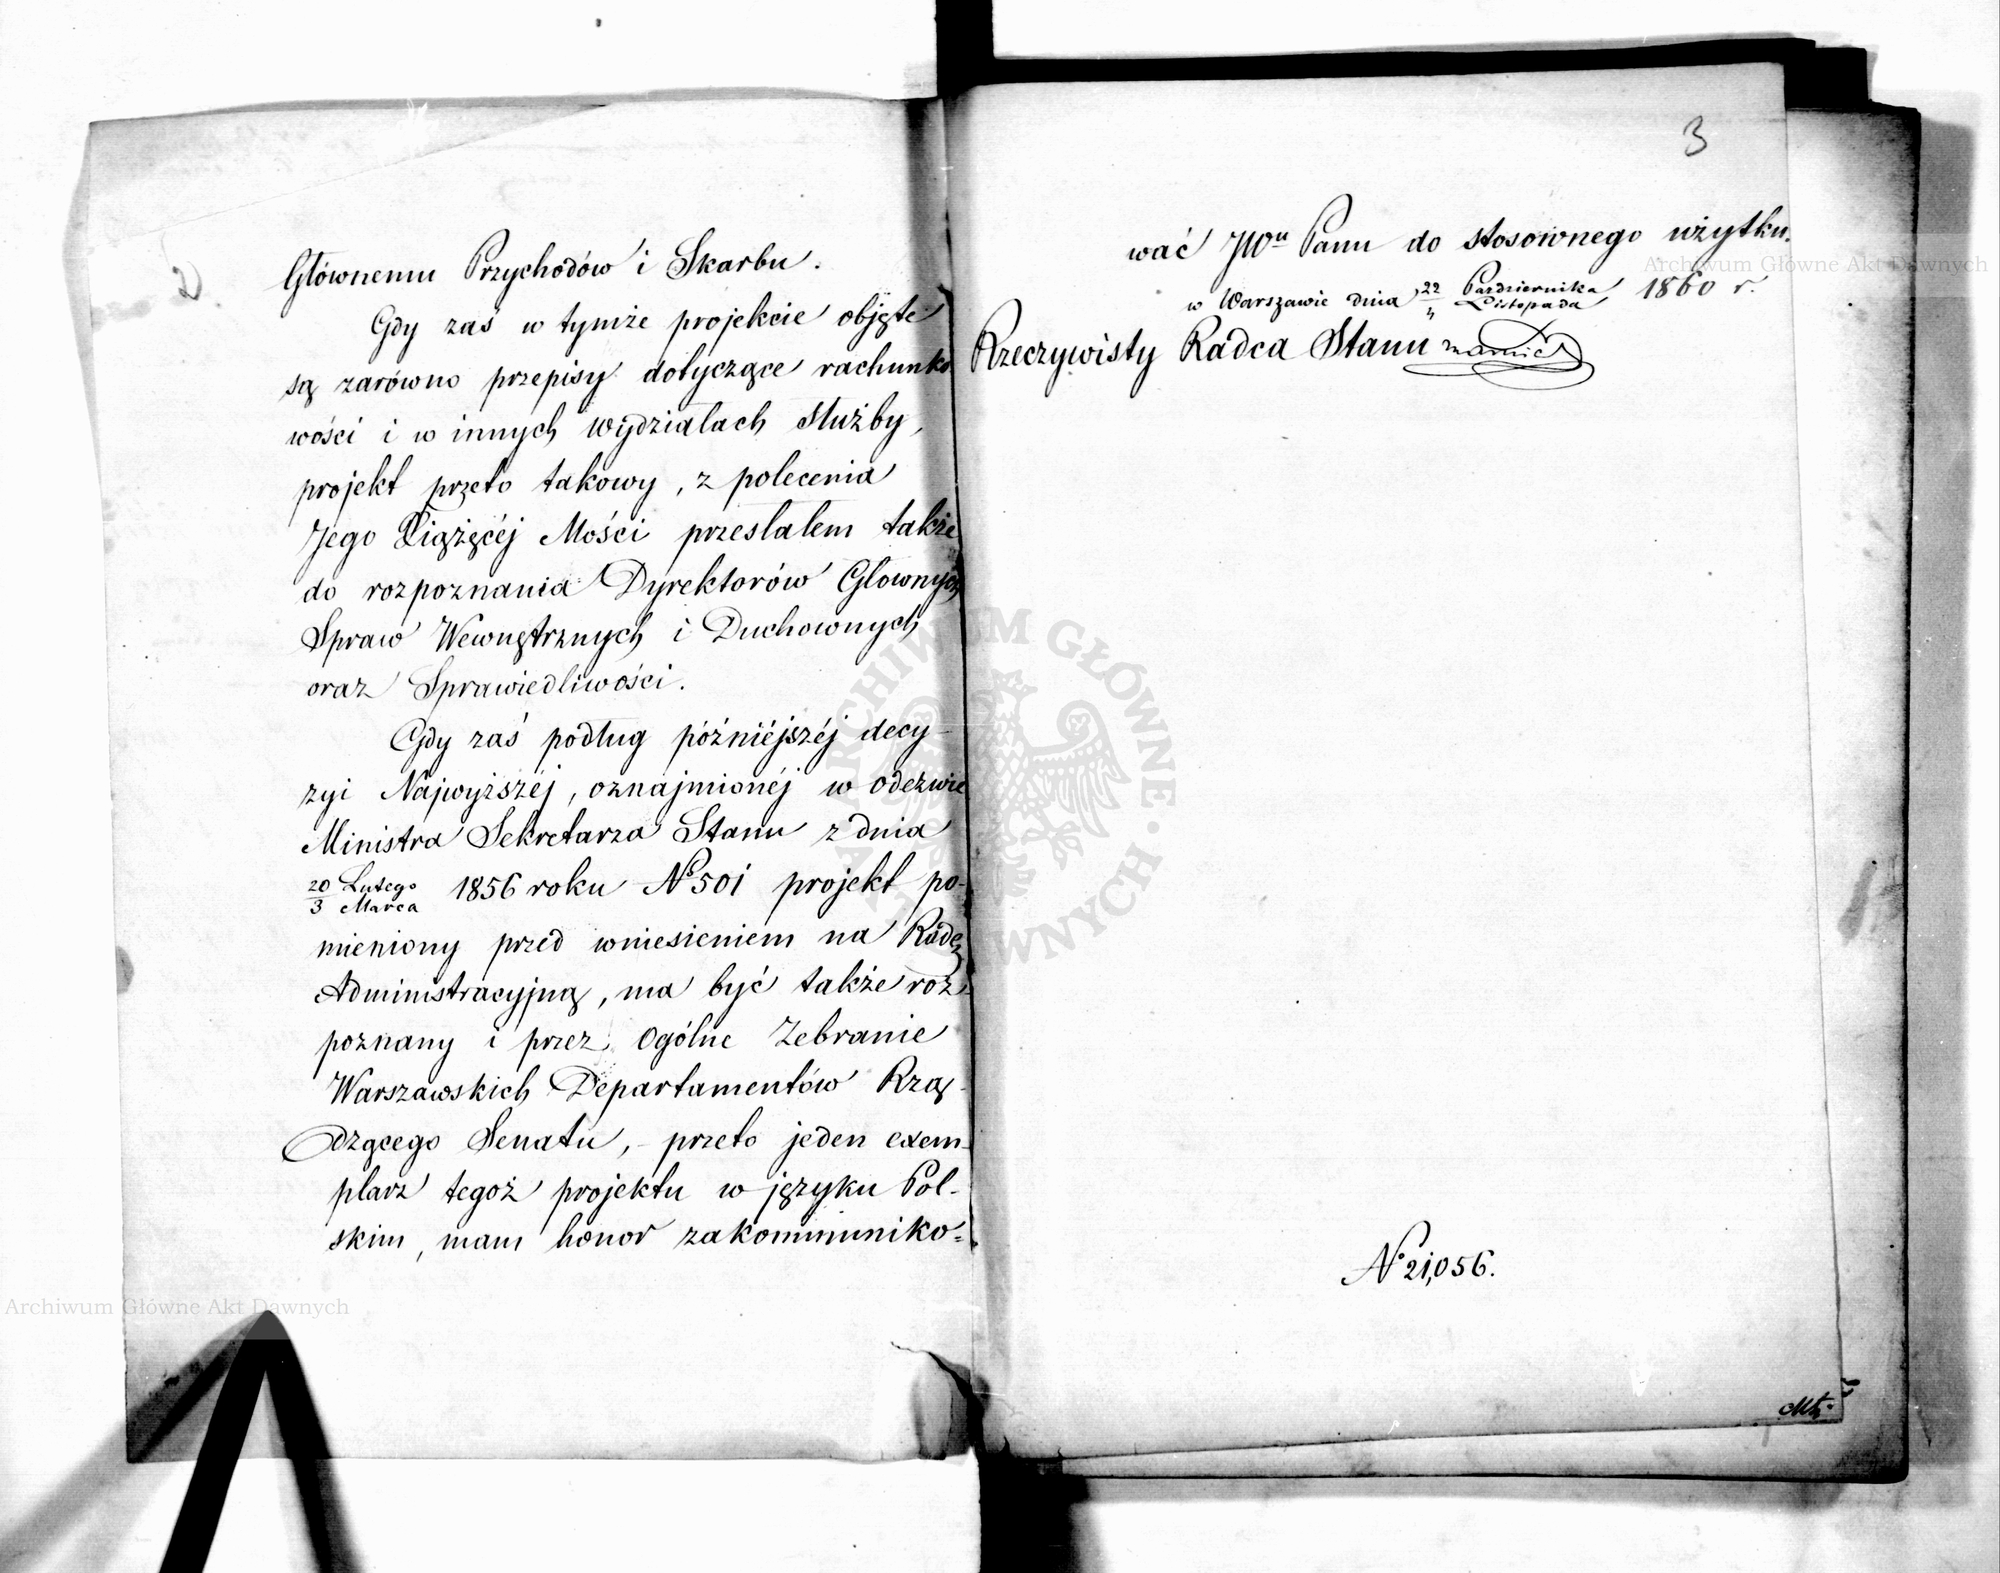 2).
Głównemu Przychodów i Skarbu.
Gdy zaś w tymże projekcie objęte
są zarówno przepisy dotyczące rachunko
wości i w innych wydziałach służby,
projekt przeto takowy, z polecenia
Jego Xiążęcéj Mości przesłałem także
do rozpoznania Dyrektorów Głownych
Spraw Wewnętrznych i Duchownych
oraz Sprawiedliwości.
Gdy zaś podług późniéjszéj decy-
zyi Najwyższéj, oznajmionéj w odezwie
Ministra Sekretarza Stanu z dnia
20 Lutego
3 Marca 1856 roku No 501 projekt po-
mieniony przed wniesieniem na Radę
Administracyjną, ma być także roz-
poznany i przez Ogólne Zebranie
Warszawskich Departamentów Rzą-
dzącego Senatu, - przeto jeden exem-
plarz tegoż projektu w języku Pol-
skim, mam honor zakommuniko=
3
wać JWu Panu do stosownego użytku.
w Warszawie dnia 22 Października
Listopada 1860 r.
Rzeczywisty Radca Stanu
No 21,056.
Archiwum Główne Akt Dawnych
Archiwum Główne Akt Dawnych
ARCHIWUM GŁÓWNE AKT DAWNYCH